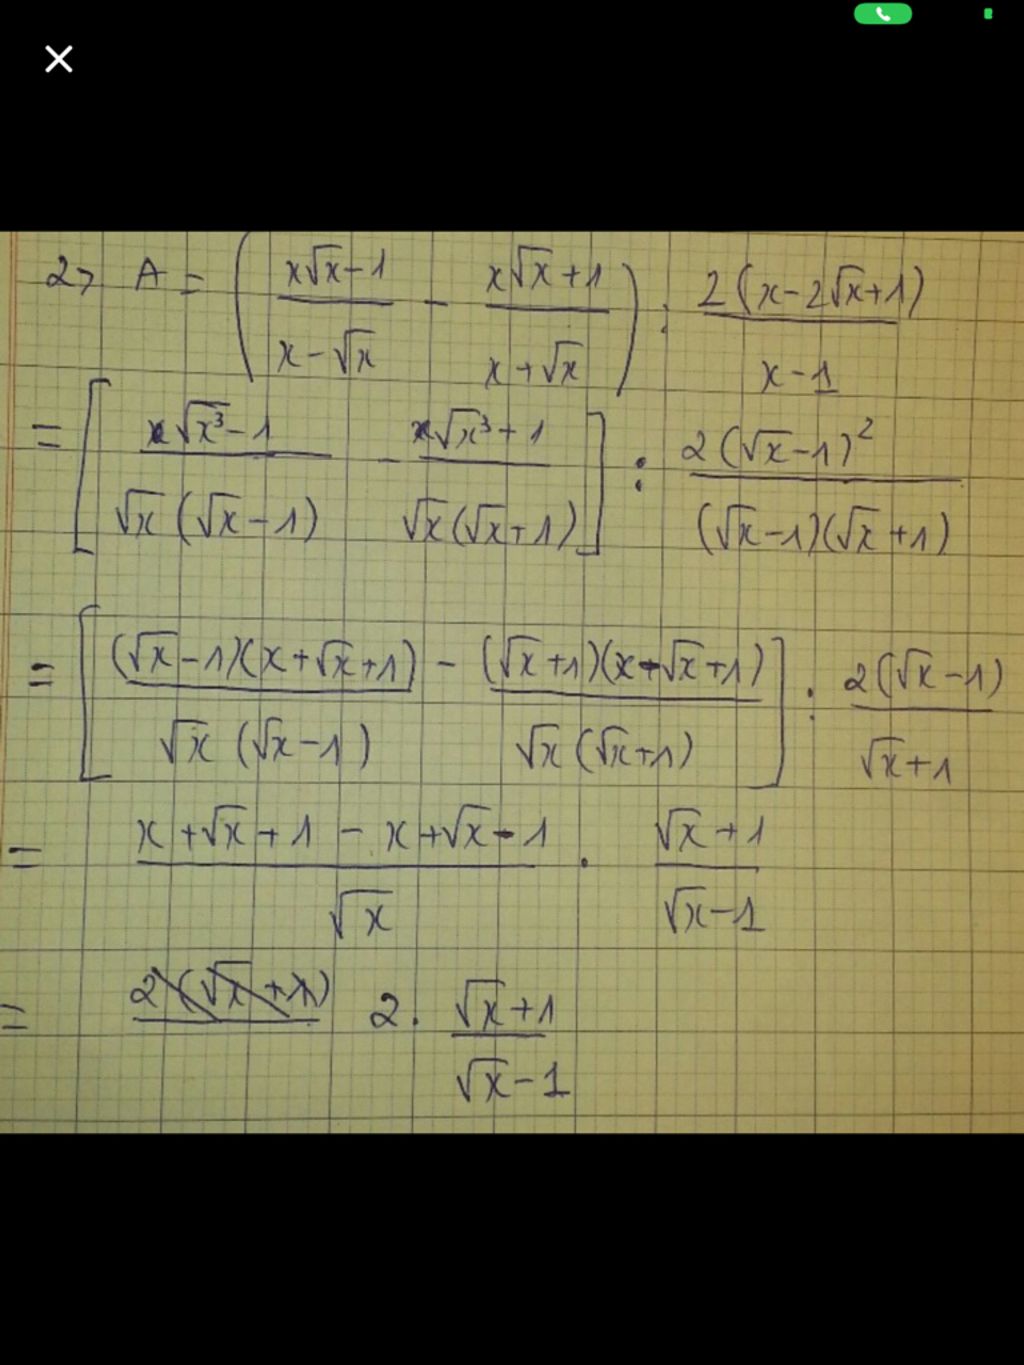 2> A = ( (x√x - 1)/(x - √x) - (x√x + 1)/(x + √x) ) : 2(x - 2√x + 1)/(x - 1)
= [ (√x³ - 1)/(√x (√x - 1)) - (√x³ + 1)/(√x(√x + 1)) ] : 2(√x - 1)²/((√x - 1)(√x + 1))
= [ (√x - 1)(x + √x + 1)/(√x (√x - 1)) - (√x + 1)(x - √x + 1)/(√x (√x + 1)) ] : 2(√x - 1)/(√x + 1)
= (x + √x + 1 - x + √x - 1)/√x . (√x + 1)/(√x - 1)
= 2 . (√x + 1)/(√x - 1)